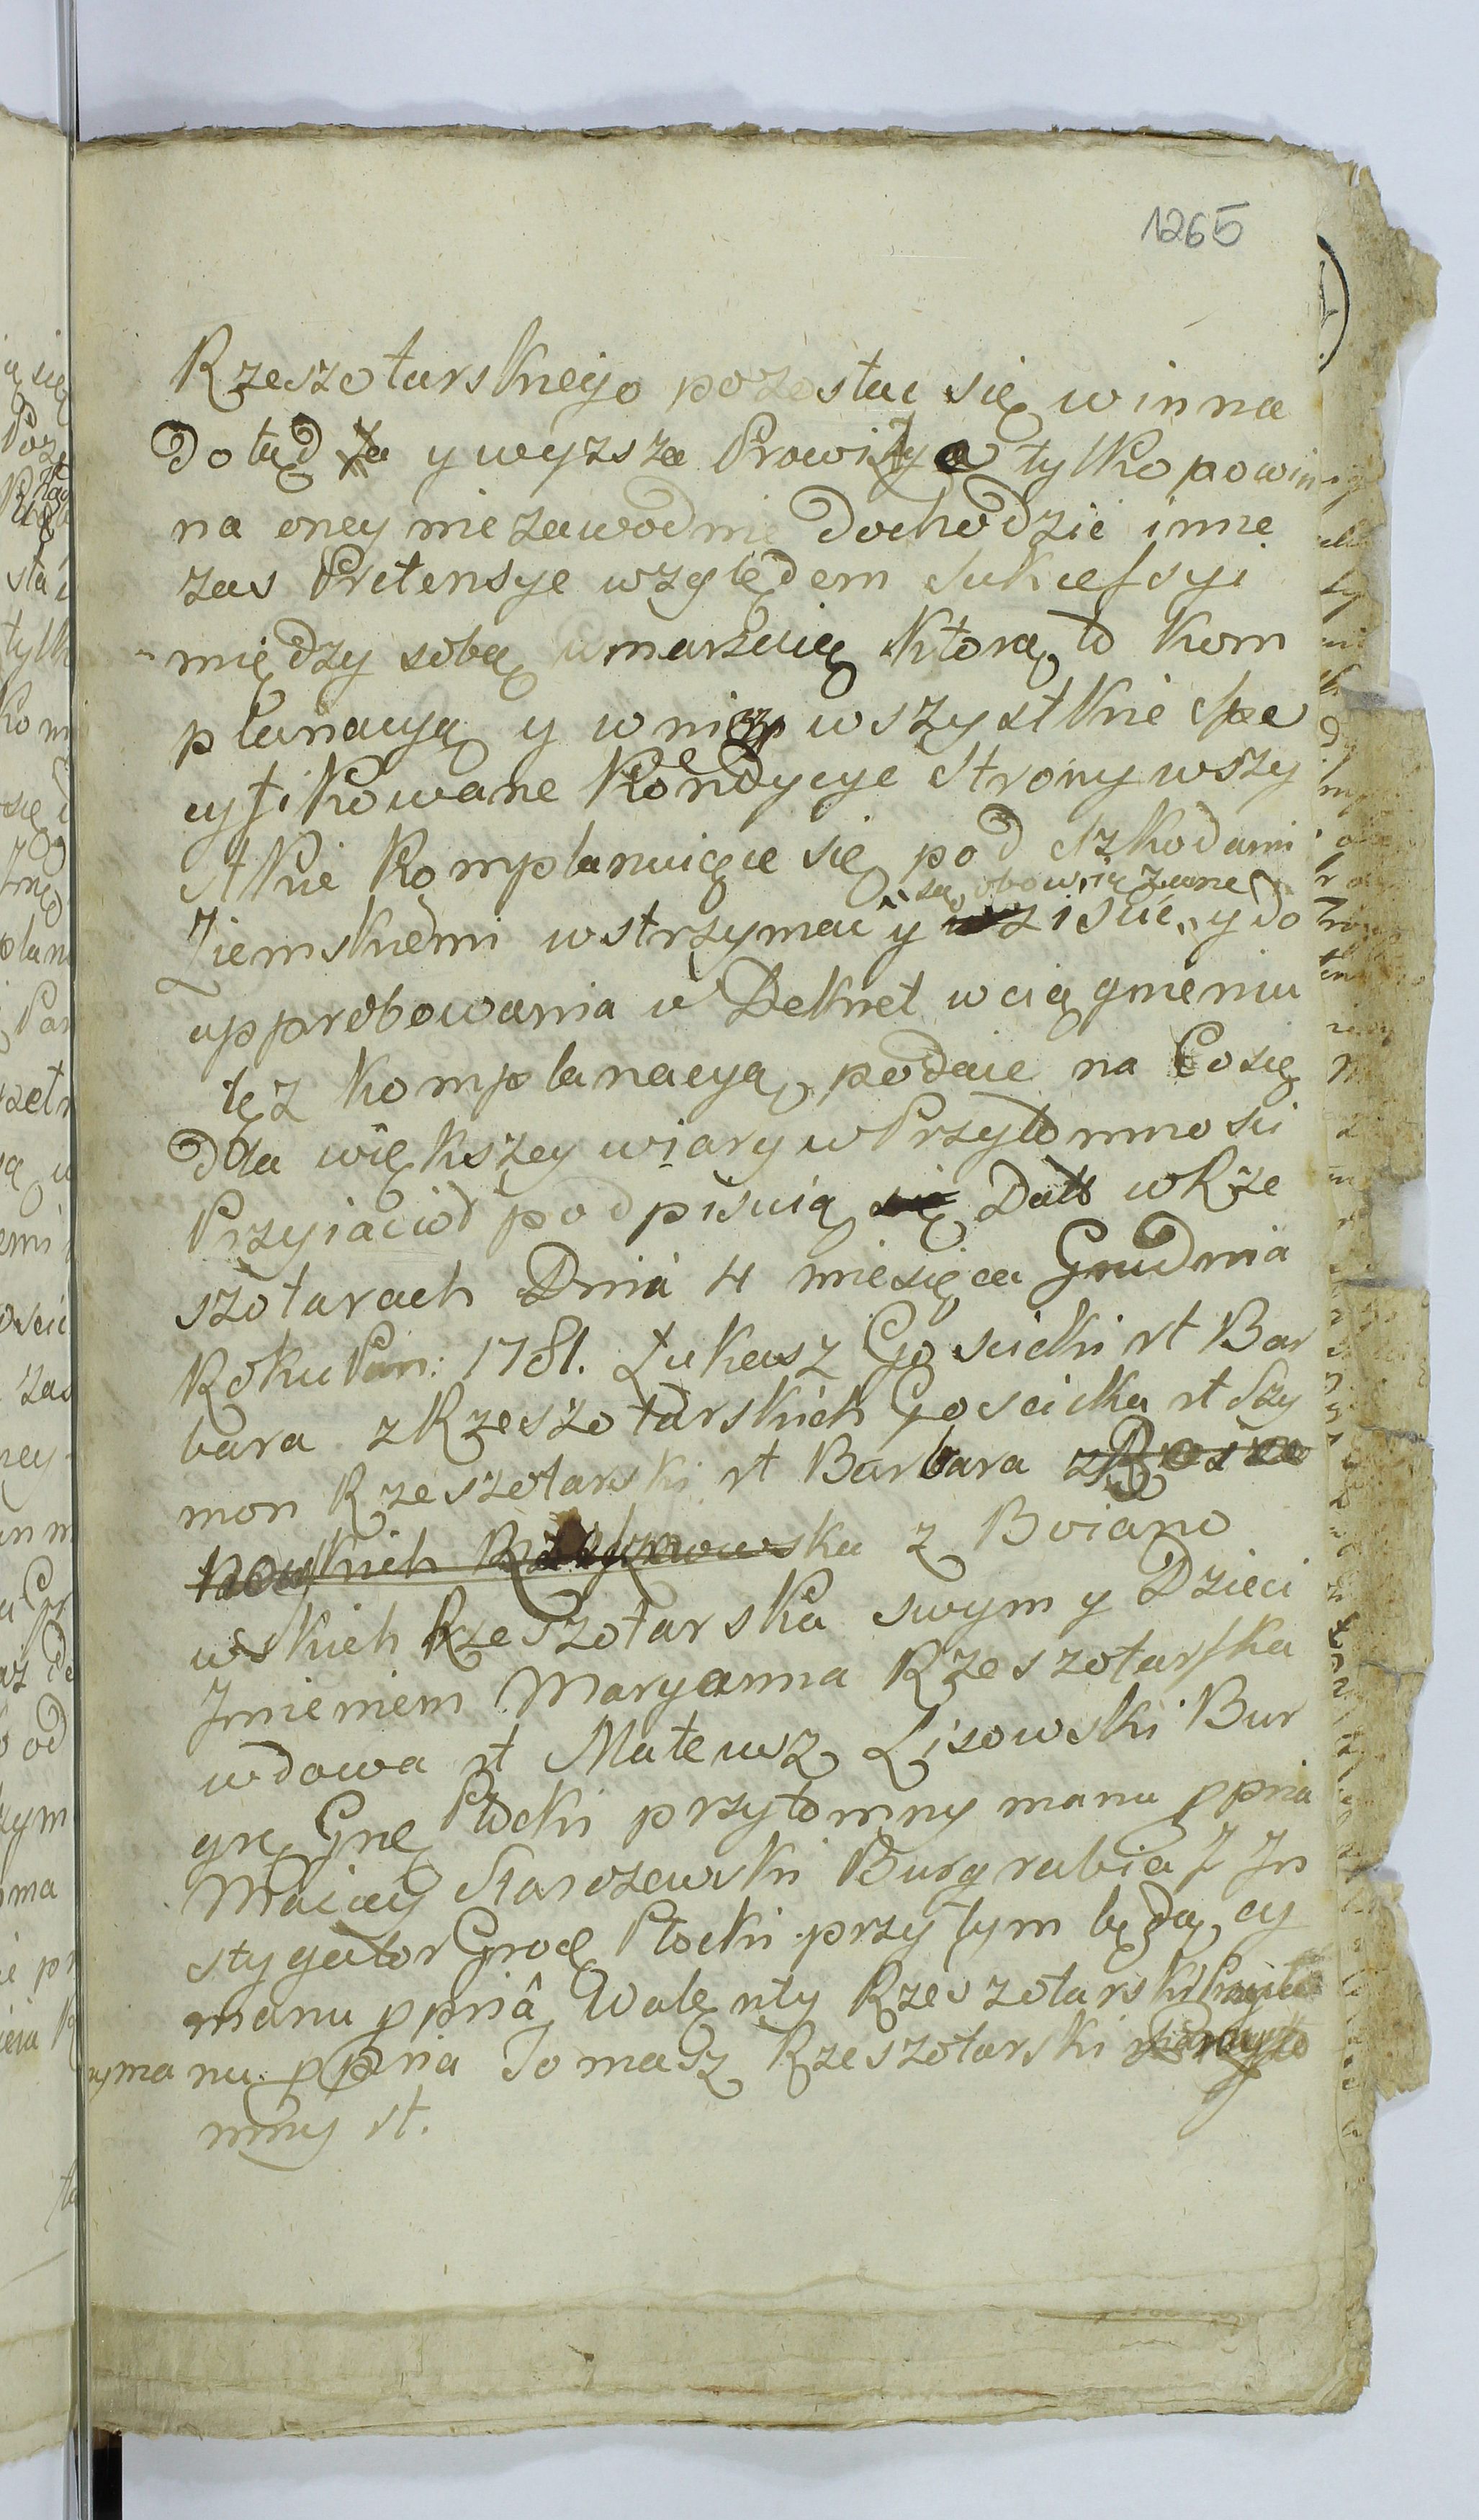 1265
Rzeszotarskiego pozostać się winna
dotąd ta y wyższa Prowizya tylko powin
na oney niezawodnie dochodzić inne
zas Pretensye względem Sukcessyi
między sobą umarzaią Którą to kom
planacyą y w niey wszystkie spe
cyfikowane Kondycye Strony wszy
stkie komplanuiące się pod szkodami
są obowiązane
Ziemskiemi wstrzymać y ziscic y do
approbowania w Dekret wciągnieniu
tęż komplanacyą podaie na Co się
dla większey wiary w Przytomnosci
Przyiacioł podpisuią się Datt w Rze
szotarach Dnia 4 miesiąca Grudnia
Roku Pań: 1781. Łukasz Gosicki rt Bar
bara z Rzeszotarskich Gościcka rt Szy
mon Rzeszotarski rt Barbara
ska z Boiano
wskich Rzeszotarska swym y Dzieci
Jmieniem Maryanna Rzeszotarska
wdowa rt Mateusz Lisowski Bur
grę Grę Płocki przytomny manu ppria
Maciey Starożewski Burgrabia J Jn
stygator Grod Płocki przy tym będący
manu ppriâ Walęnty Rzeszotarski
nu ppria Tomasz Rzeszotarski
mny rt.